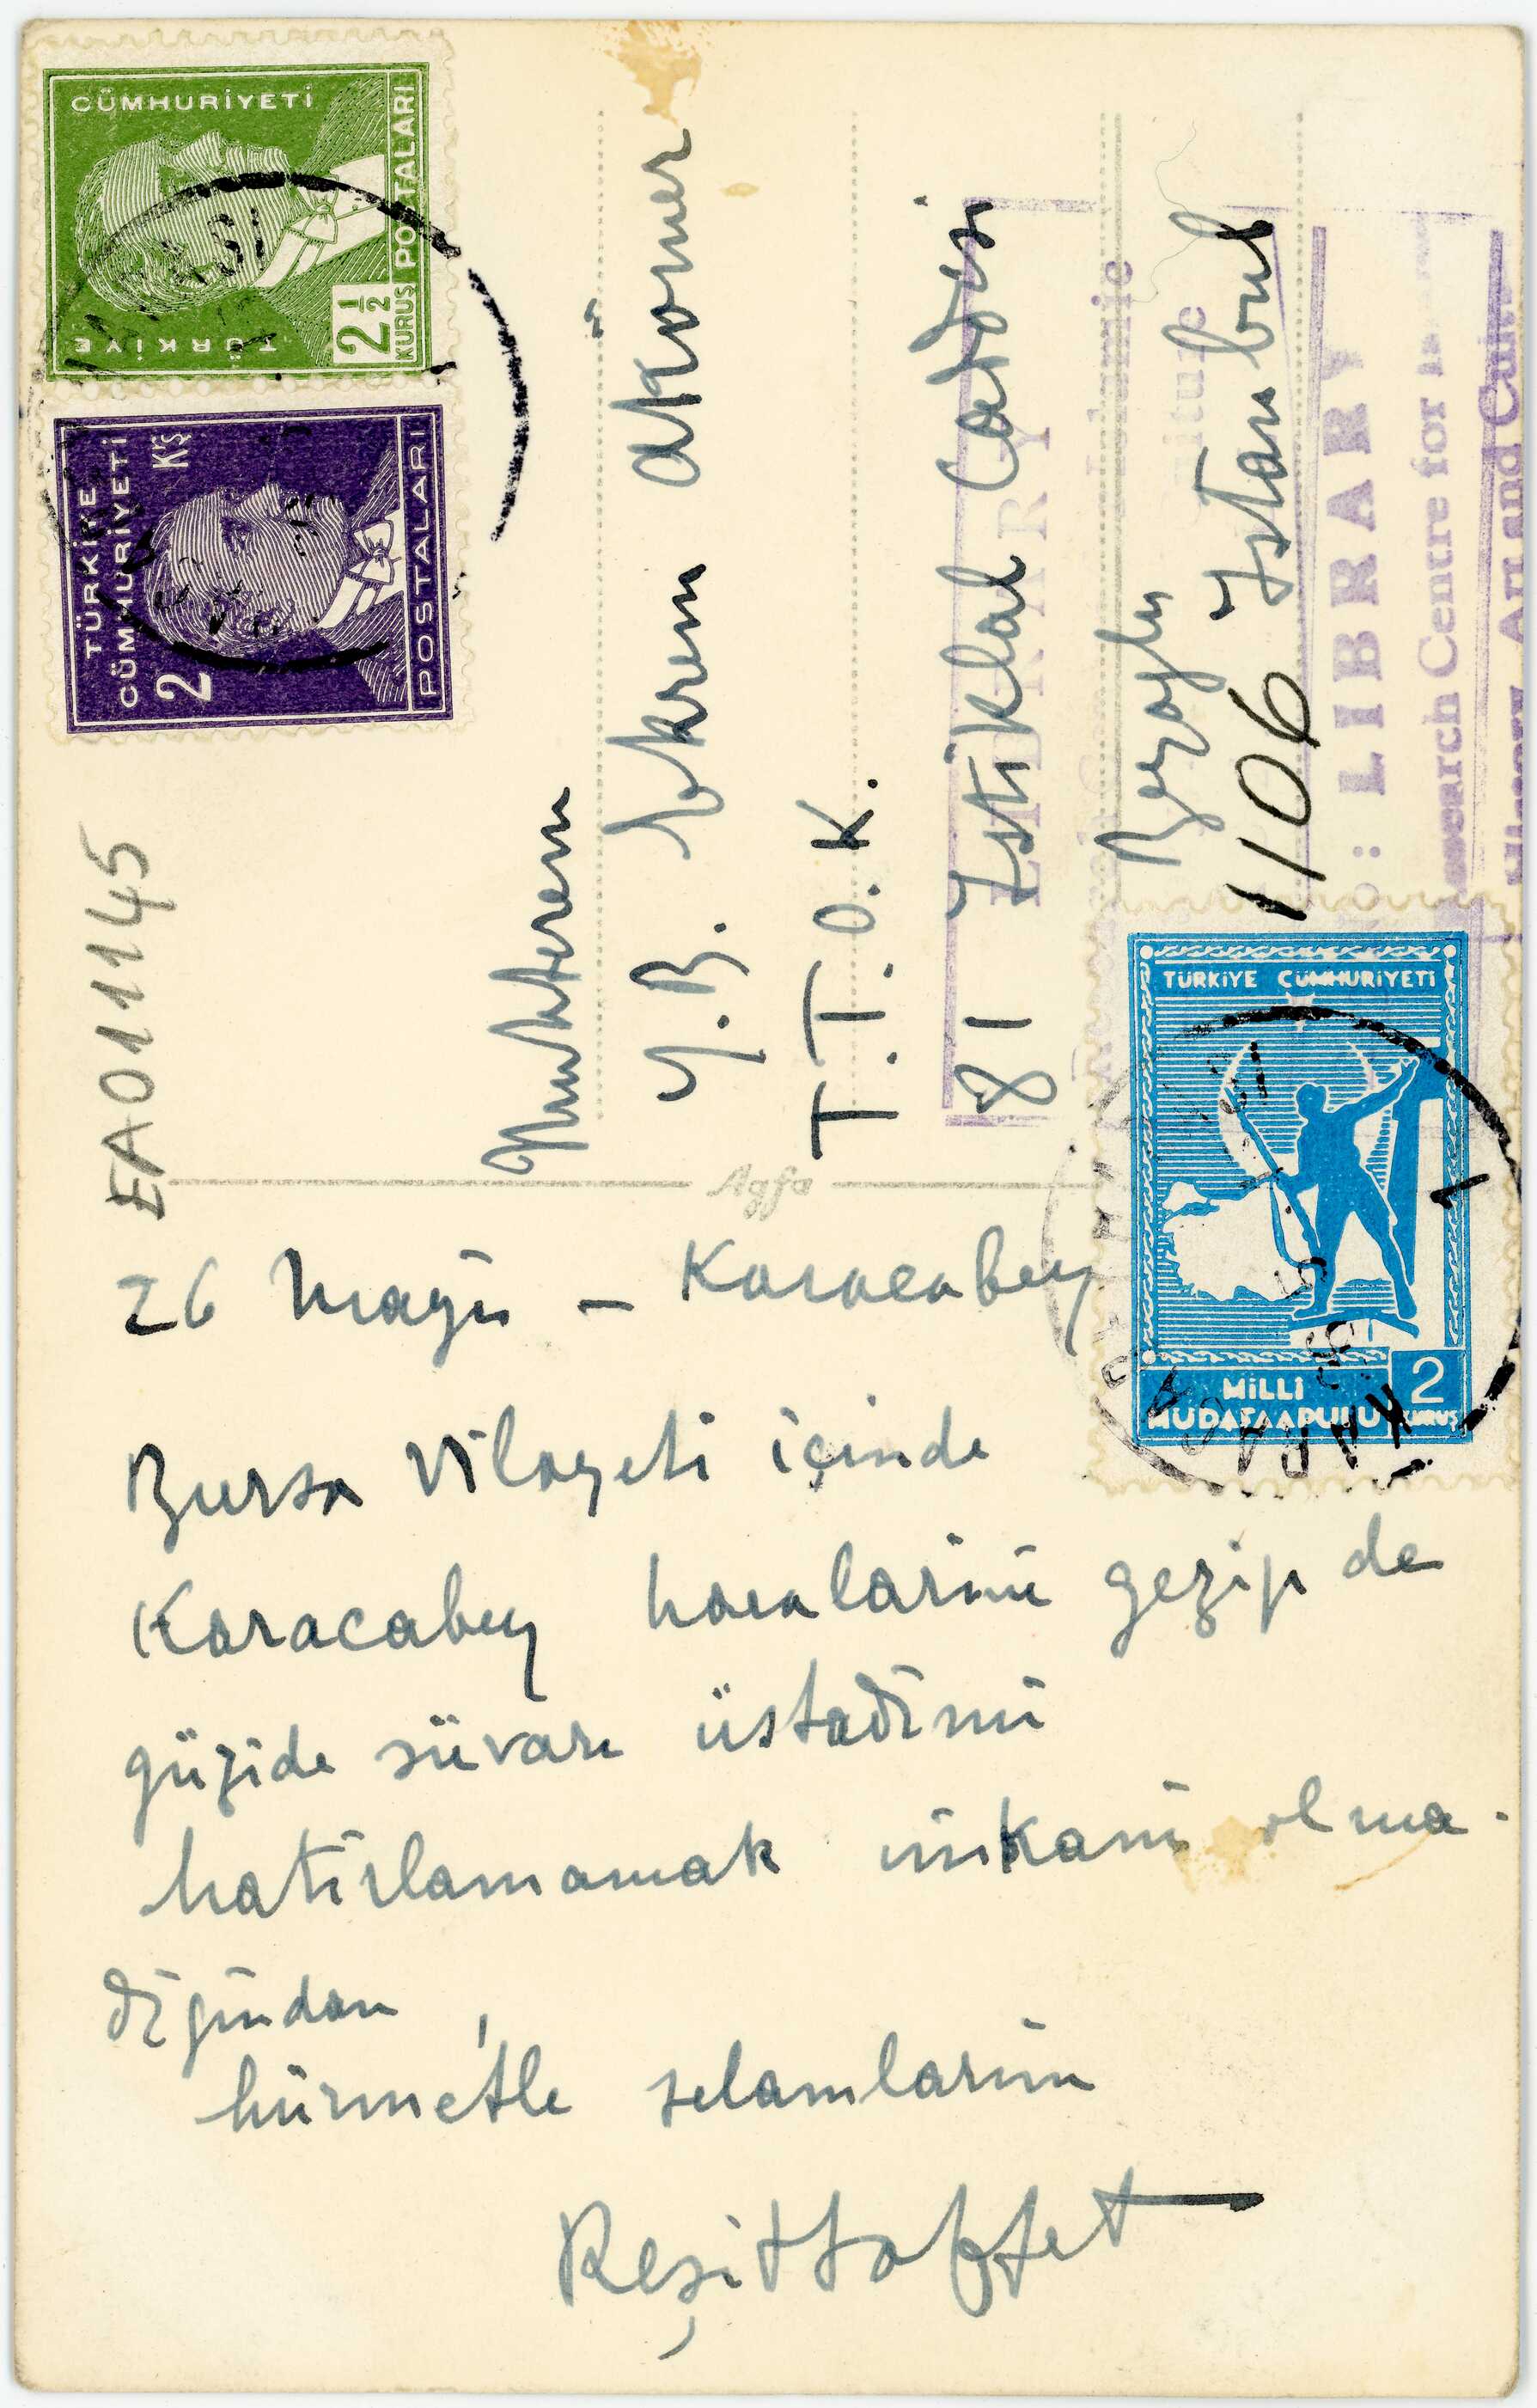 TÜRKİYE CÜMHURİYETİ
POSTALARI
2 1/2 KURUŞ
TÜRKİYE
CÜMHURİYETİ
2 K'Ş
POSTALARI
EA011145
Muhterem
Y.B. Ekrem Akömer
T.T.O.K.
81 Istiklal Caddesi
Beyoglu
1106 Istanbul
LIBRARY
LIBRARY
Research Centre for
Art and Cult
Agfa
TÜRKİYE CÜMHURİYETİ
MİLLİ
MÜDAFAA PULU
2 KURUŞ
26 Mayis - Karacabey
Bursa Vilayeti içinde
Karacabey haralarini gezip de
güzide süvari üstadimi
hatirlamamak imkani olma-
diğindan,
hürmetle selamlarim
Reşit Saffet